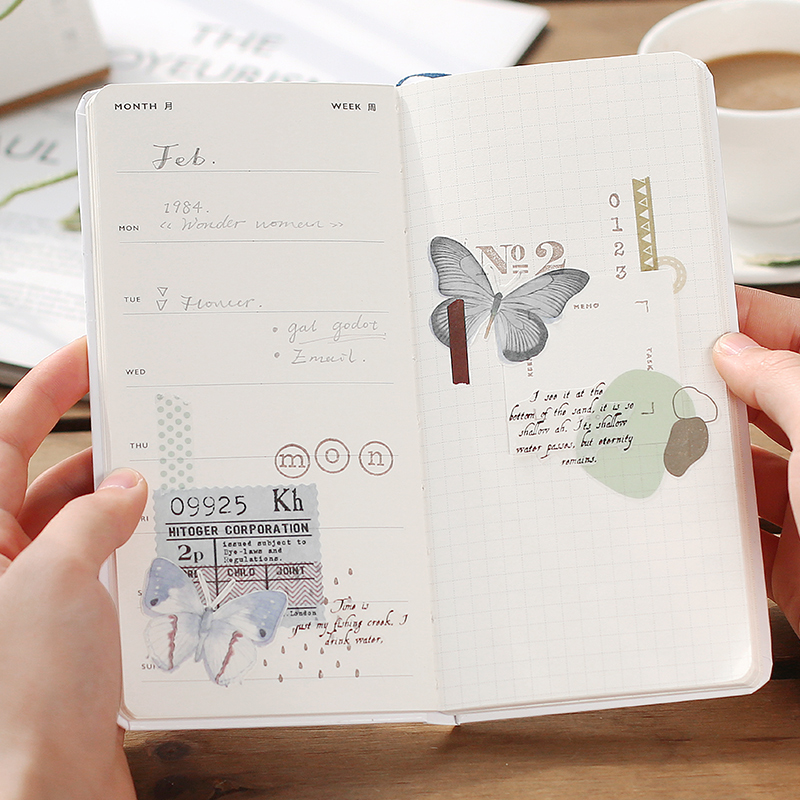 THE
MONTH 月
WEEK 周
Feb.
1984.
MON
<< Wonder women >>
TUE
Flower.
• gal godot
• Email.
WED
THU
m o n
09925 Kh
HITOGER CORPORATION
2p
issued subject to
Bye-laws and
Regulations.
CHILD JOINT
London
Time is
just my fishing creek. I
drink water,
SUN
0
1
2
3
No 2
MEMO
TASK
I see it at the
bottom of the sand, it is so
shallow ah. Its shallow
water passes, but eternity
remains.